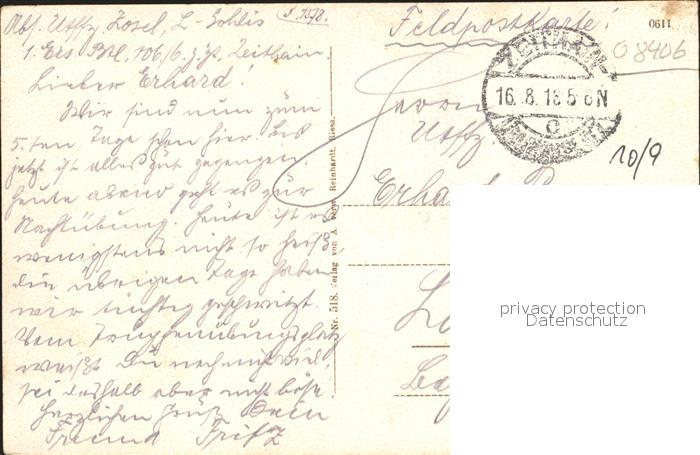 Abs. Utffz Zosel, L-Gohlis
1. Ers. Btl. 106/6. z. Zt. Zeithain.
Lieber Erhard!
Wir sind nun zum
5.ten Tage schon hier. Bis
jetzt ist alles gut gegangen.
Heute abend geht es zur
Nachtübung. Heute ist es
wenigstens nicht so heiß
die übrigen Tage haben
wir tüchtig geschwitzt.
Vom Truppenübungsplatz
weißt Du noch nicht viel,
sei deshalb aber nicht böse.
Herzlichen Gruß Dein
Freund Fritz
Feldpostkarte!
0611
08406
ZEITHAIN
16.8.18 5-6N
c
10/9
Herrn
Utffz
Erhard
Nr. 518. Verlag von A. Reinhardt, Riesa.
privacy protection
Datenschutz